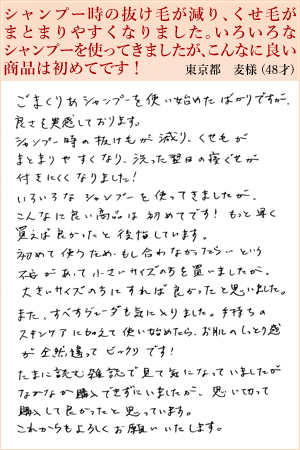 シャンプー時の抜け毛が減り、くせ毛が
まとまりやすくなりました。いろいろな
シャンプーを使ってきましたが、こんなに良い
商品は初めてです！
東京都　麦様（48才）
ごまくりあシャンプーを使い始めたばかりですが、
良さを実感しております。
シャンプー時の抜け毛が減り、くせ毛が
まとまりやすくなり、洗った翌日の寝ぐせが
付きにくくなりました!
いろいろなシャンプーを使ってきましたが、
こんなに良い商品は初めてです! もっと早く
買えば良かったと後悔しています。
初めて使うため、もし合わなかったら…という
不安があって小さいサイズのを買いましたが、
大きいサイズのにすれば良かったと思いました。
また、すべすヴェーダも気に入りました。手持ちの
スキンケアに加えて使い始めたら、お肌のしっとり感
が全然違ってビックリです!
たまに読む雑誌で見て気になっていましたが
なかなか購入できずにいましたが、思い切って
購入して良かったと思っています。
これからもよろしくお願いいたします。